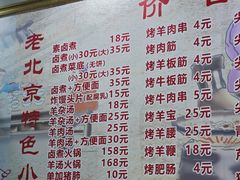 价
老北京特色小
素卤煮 18元
卤煮(小)30元(大)35元
卤煮菜底(无饼)
(小)30元(大)35元
卤煮+方便面 35元
炸馒头片(配腐乳) 15元
羊杂汤 25元
羊杂汤+方便面 30元
羊肉汤 25元
羊肉汤+方便面 30元
卤煮火锅 158元
羊蝎火锅 168元
单加猪肺 10元
烤羊肉串 4元
烤肉筋 4元
烤羊板筋 4元
烤牛板筋 4元
烤牛肉串 5元
烤羊宝
烤羊腰
烤羊鞭
烤肥肠 4元